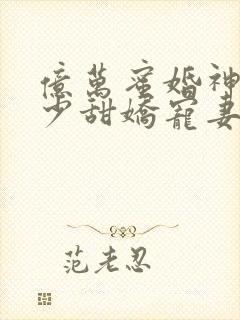 億萬蜜婚神
少甜嬌寵妻
范老忍